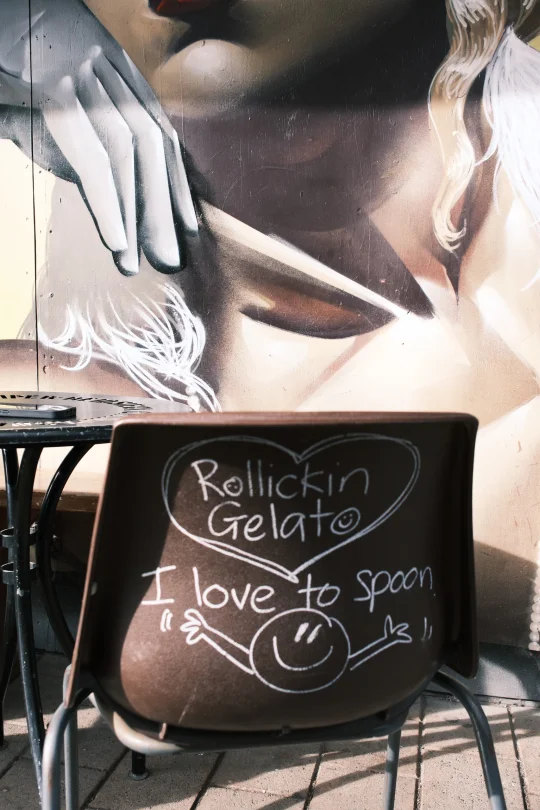 Rollickin
Gelato
I love to spoon